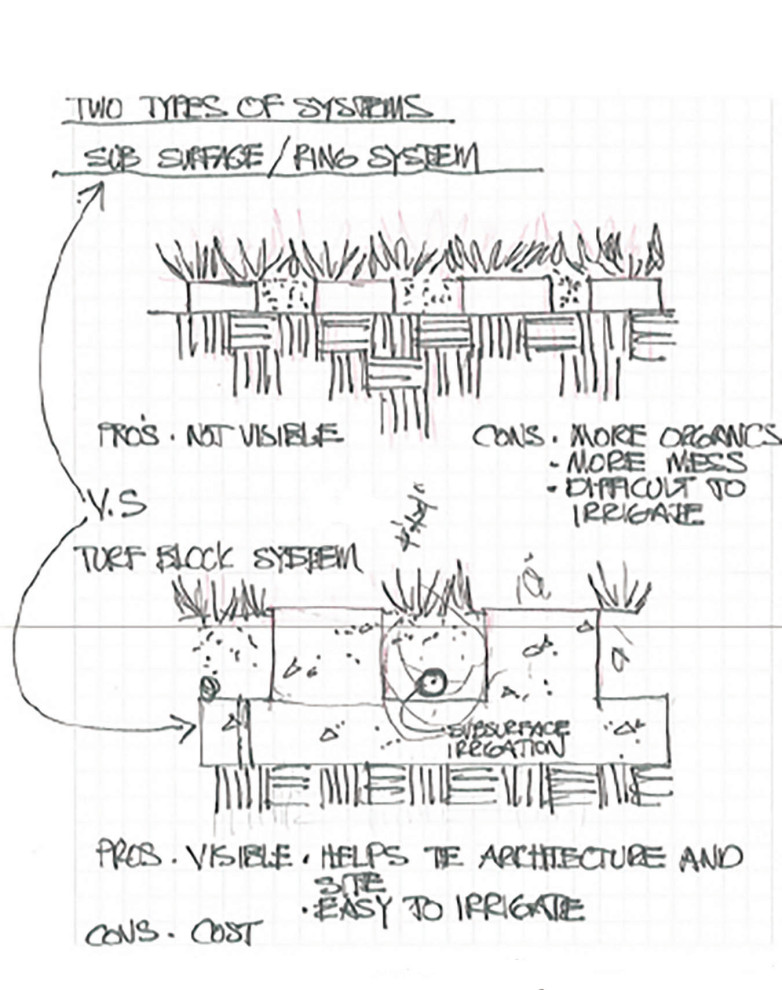 TWO TYPES OF SYSTEMS
SUB SURFACE / RING SYSTEM
PRO'S . NOT VISIBLE
CONS . MORE ORGANICS
. MORE MESS
. DIFFICULT TO
IRRIGATE
V.S
TURF BLOCK SYSTEM
SUBSURFACE
IRRIGATION
PROS . VISIBLE . HELPS TE ARCHITECTURE AND
SITE
. EASY TO IRRIGATE
CONS . COST